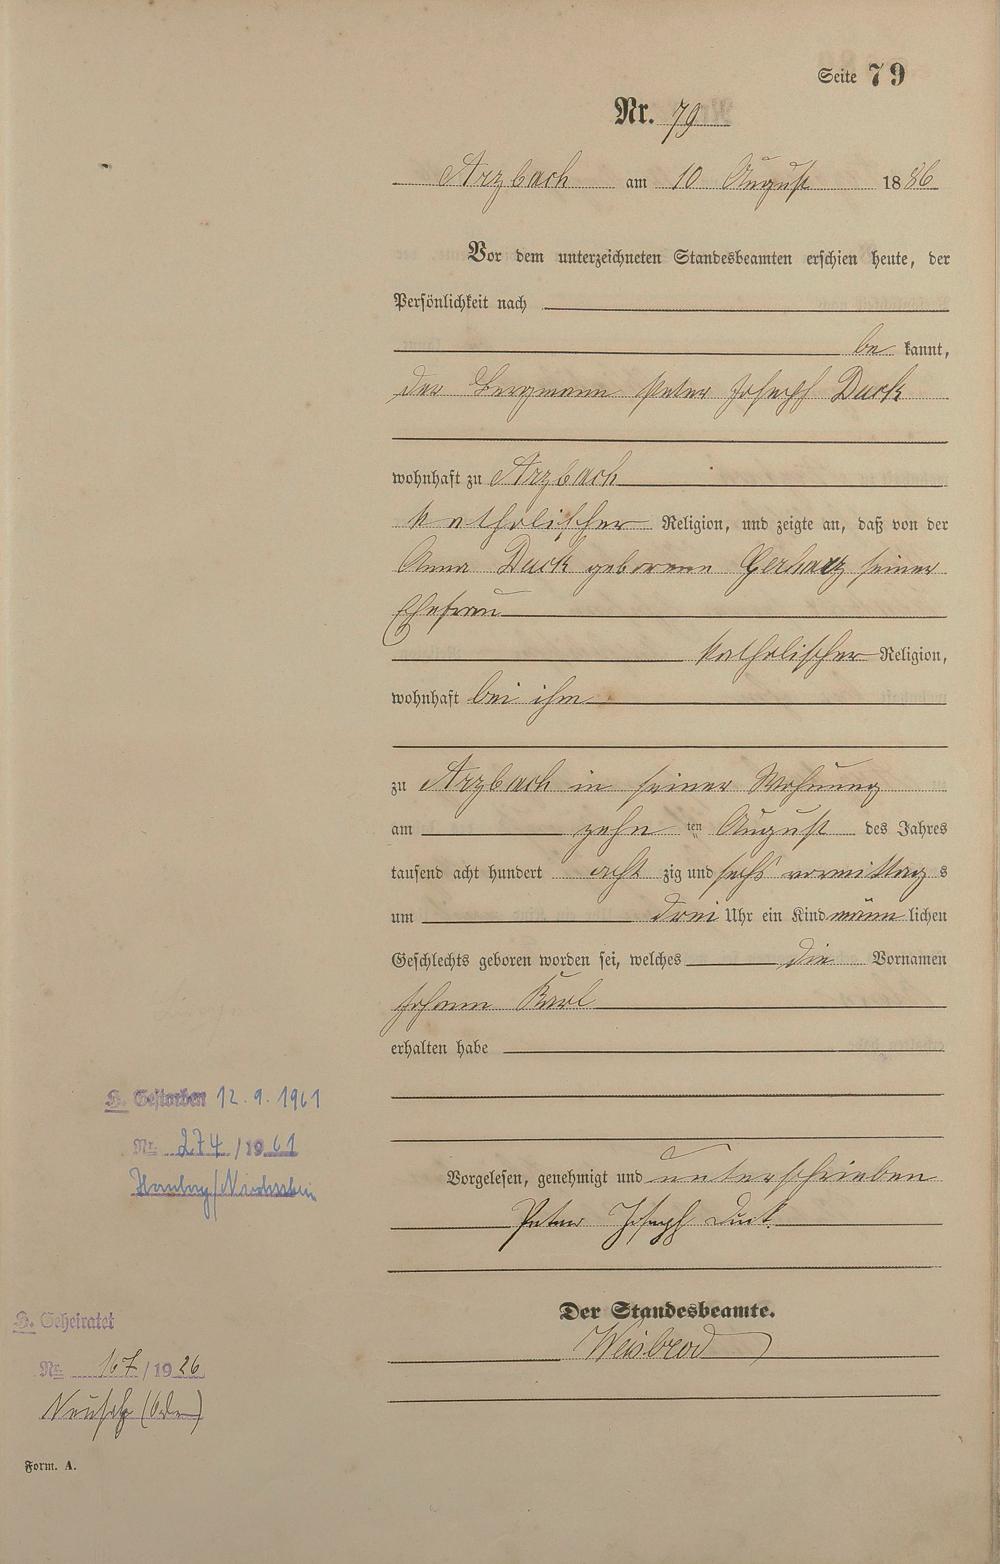 Seite 79
Nr. 79
Arzbach am 10 August 1886
Vor dem unterzeichneten Standesbeamten erschien heute, der
Persönlichkeit nach
be kannt,
der Bergmann Peter Joseph Duck
wohnhaft zu Arzbach
katholischer Religion, und zeigte an, daß von der
Anna Duck geborene Gerharz seiner
Ehefrau
katholischer Religion,
wohnhaft bei ihm
zu Arzbach in seiner Wohnung
am zehn ten August des Jahres
tausend acht hundert acht zig und sechs vormittag s
um drei Uhr ein Kind männ lichen
Geschlechts geboren worden sei, welches die Vornamen
Johann Karl
erhalten habe
Gestorben 12.9.1961
Nr. 274/1961
Vorgelesen, genehmigt und unterschrieben
Peter Joseph Duck
Der Standesbeamte.
Weisbrod
Geheiratet
Nr. 167/1926
Neusalz (Oder)
Form. A.